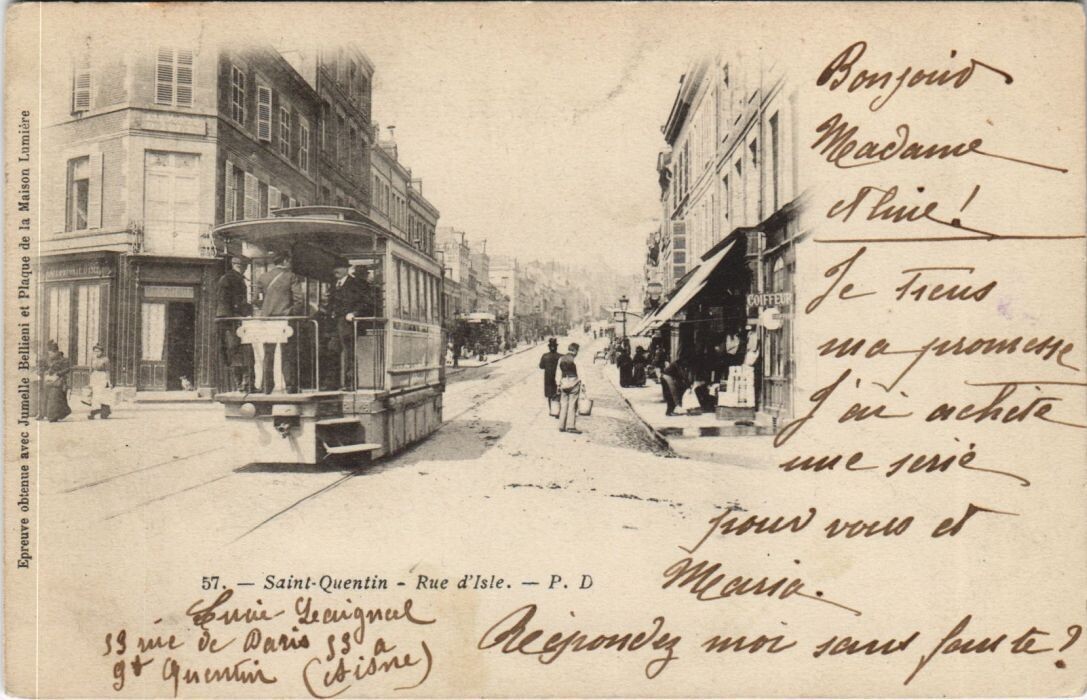 Epreuve obtenue avec Jumelle Bellieni et Plaque de la Maison Lumière
COIFFEUR
57. — Saint-Quentin - Rue d'Isle. — P. D
Bonjour
Madame
et
Je tiens
ma promesse
J'ai acheté
une serie
pour vous et
Maria.
Répondez moi sans faute?
53 rue de Paris 53 a
St Quentin (Aisne)